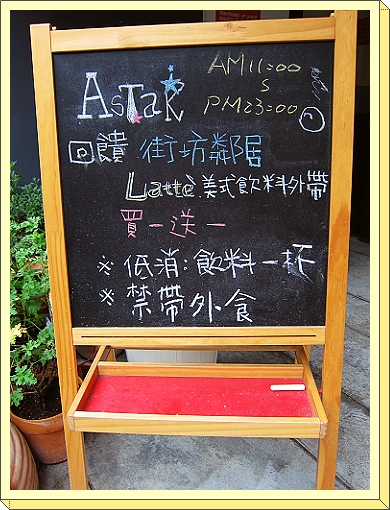 AsTaR
AM11:00
S
PM23:00
回饋 街坊鄰居
Latte 美式飲料外帶
買一送一
※ 低消:飲料一杯
※ 禁帶外食